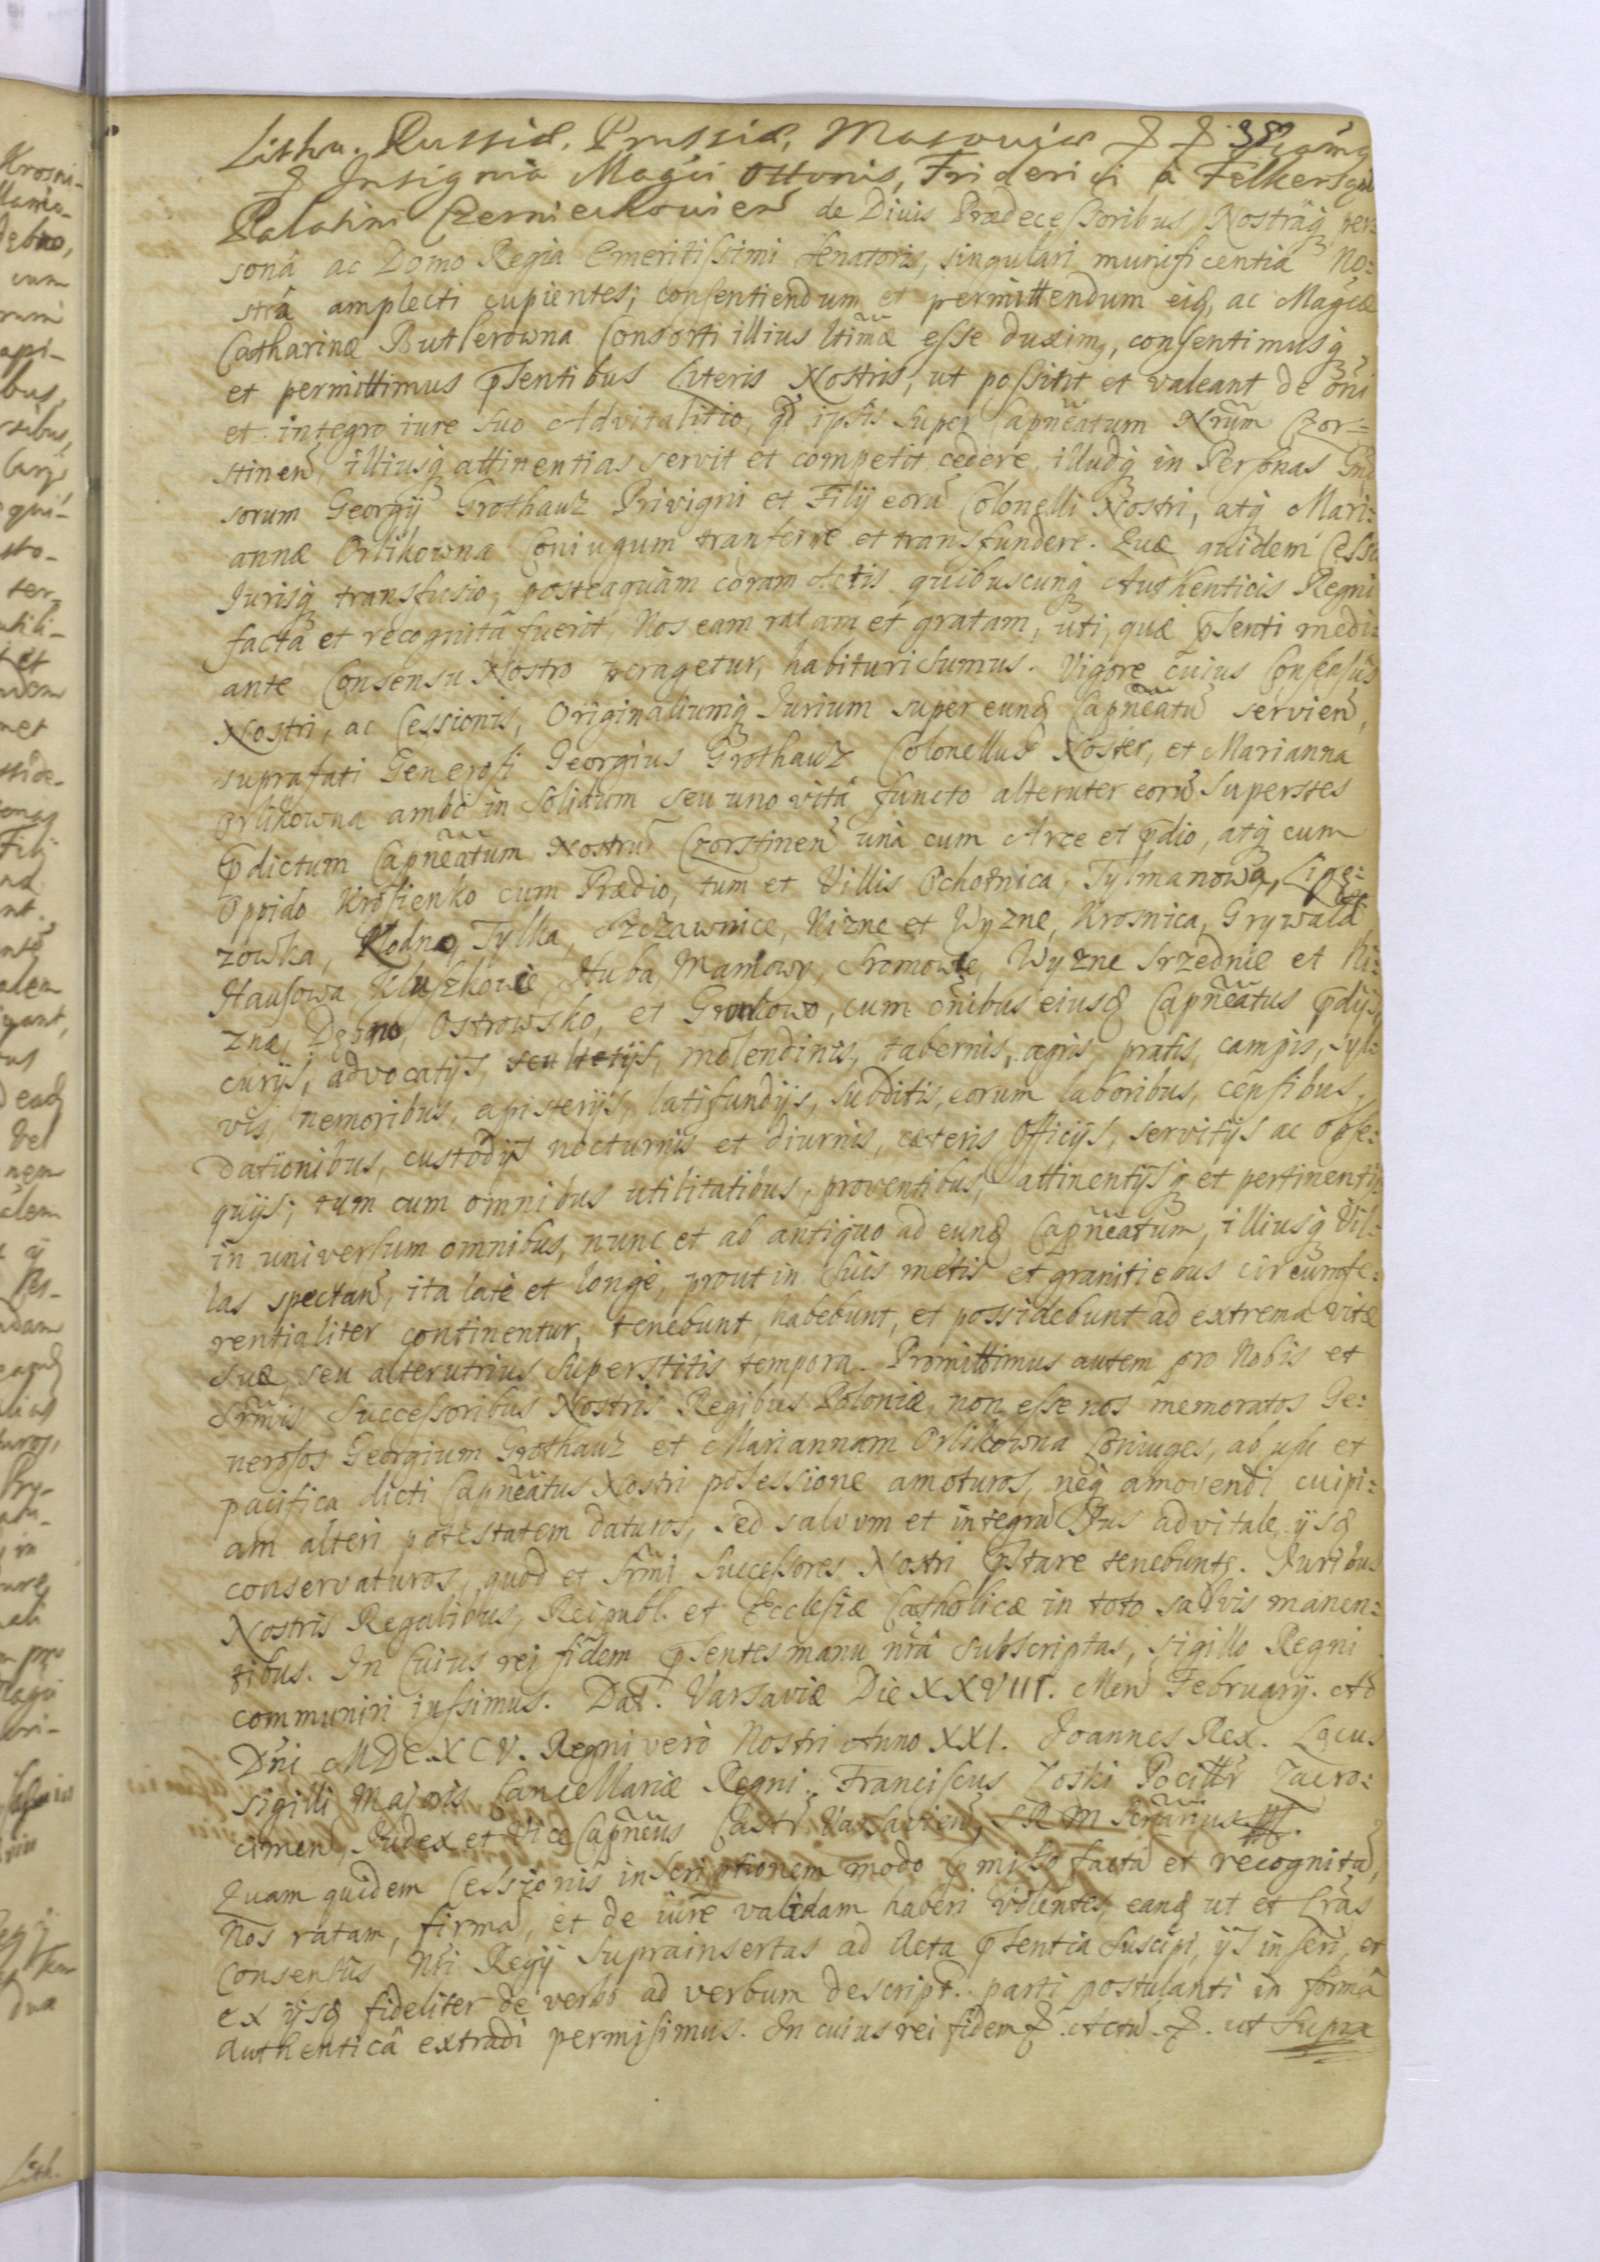 Lithu. Russiæ, Prussiæ, Masouiæ
Insignia Magci Ottonis, Friderici a Felkersam
Palatini Czerniechouien de Diuis Prædecessoribus Nostraq per:
sona ac Domo Regia Emeritissimi Senatoris, singulari munificentia No:
stra amplecti cupientes; consentiendum et permittendum eid, ac Magcæ
Catharinæ Butlerowna Consorti illius ltimæ esse duxim, consentimusq
et permittimus pñtibus Literis Nostris, ut possint et valeant de oñi
et integro iure suo Advitalitio, qd ipsis super Capneatum Nrum Czor=
stinen, illiusq attinentias servit et competit cedere, illudq in Personas Gñr
sorum Georgij Grothauz Privigni et Filij eoru Colonelli Nostri, atq Mari:
annæ Orlikowna Coniugum tranferre et transfundere. Quæ quidem Cessio
Jurisq transfusio, posteaquam coram Actis quibuscunq Authenticis Regni
facta et recognita fuerit, Nos eam ratam et gratam, uti, quæ pñti medi:
ante Consensu Nostro peragetur, habituri sumus. Vigore cuius Consensus
Nostri, ac Cessionis, Originaliumq Jurium super eund Capneatu servien,
suprafati Generosi Georgius Grothauz Colonellus Noster, et Marianna
Orlikowna ambo in solidum seu uno vita functo alteruter eoru Superstes
pdictum Capneatum Nostru Czorstinen una cum Arce et pdio, atq cum
Oppido Krosienko cum Prædio, tum et Villis Ochotnica, Tylmanowa,
zowska, Kłodne, Tylka, Szczawnice, Nizne et Wyzne, Krosnica, Grywałd
Hausowa, Kluszkowie, Huba, Maniowy, Sromowie, Wyzne Srzednie et Ni:
znæ, Dębno, Ostrowsko, et Gronkowo, cum oñibus eiusd Capneatus pdijs,
curijs, advocatijs, scultetijs, molendinis, tabernis, agris, pratis, campis, syl:
vis, nemoribus, apisterijs, latifundijs, subditis, eorum laboribus, censibus,
dationibus, custodijs nocturnis et diurnis, cæteris Officijs, servitijs ac obse:
quijs; tum cum omnibus utilitatibus, proventibus, attinentijsq et pertinentijs
in universum omnibus, nunc et ab antiquo ad eund Capneatum, illiusq Vil:
las spectan, ita late et longe, prout in suis metis et granitiebus circumfe:
rentialiter continentur, tenebunt, habebunt, et possidebunt ad extrema vitæ
suæ seu alterutrius Superstitis tempora. Promittimus autem pro Nobis et
Srmis Successoribus Nostris Regibus Poloniæ, non esse nos memoratos Ge:
nerosos Georgium Grothauz et Mariannam Orlikowna Coniuges, ab usu et
pacifica dicti Capneatus Nostri possessione amoturos, neq amovendi cuipi:
am alteri potestatem daturos, sed salvum et integru Jus advitale ijsd
conservaturos, quod et Srmi Successores Nostri pstare tenebunt. Juribus
Nostris Regalibus, Reipubl. et Ecclesiæ Catholicæ in toto salvis manen:
tibus. In Cuius rej fidem pñtes manu nra Subscriptas, sigillo Regni
communiri iussimus. Dat. Varsaviæ Die XXVIII. Men February. Ao
Dñi MDCXCV. Regni vero Nostri Anno XXI. Joannes Rex. Locus
sigilli Majoris Cancellariæ Regni. Franciscus Zoski Pocittr Zacro:
cimen, Judex et Vice Capneus Castr Varsavien, S R M Scrarius.
Quam quidem Cessionis inscriptionem modo pmisso facta et recognita,
Nos ratam, firma, et de iure validam haberi volentes, eand ut et Lras
Consensus Nri Regij Suprainsertas ad Acta pñtia Suscipi, ijs inseri, et
ex ijsd fideliter de verbo ad verbum descript. parti postulanti in forma
authentica extradi permisimus. In cuius rei fidem. Actu. ut Supra